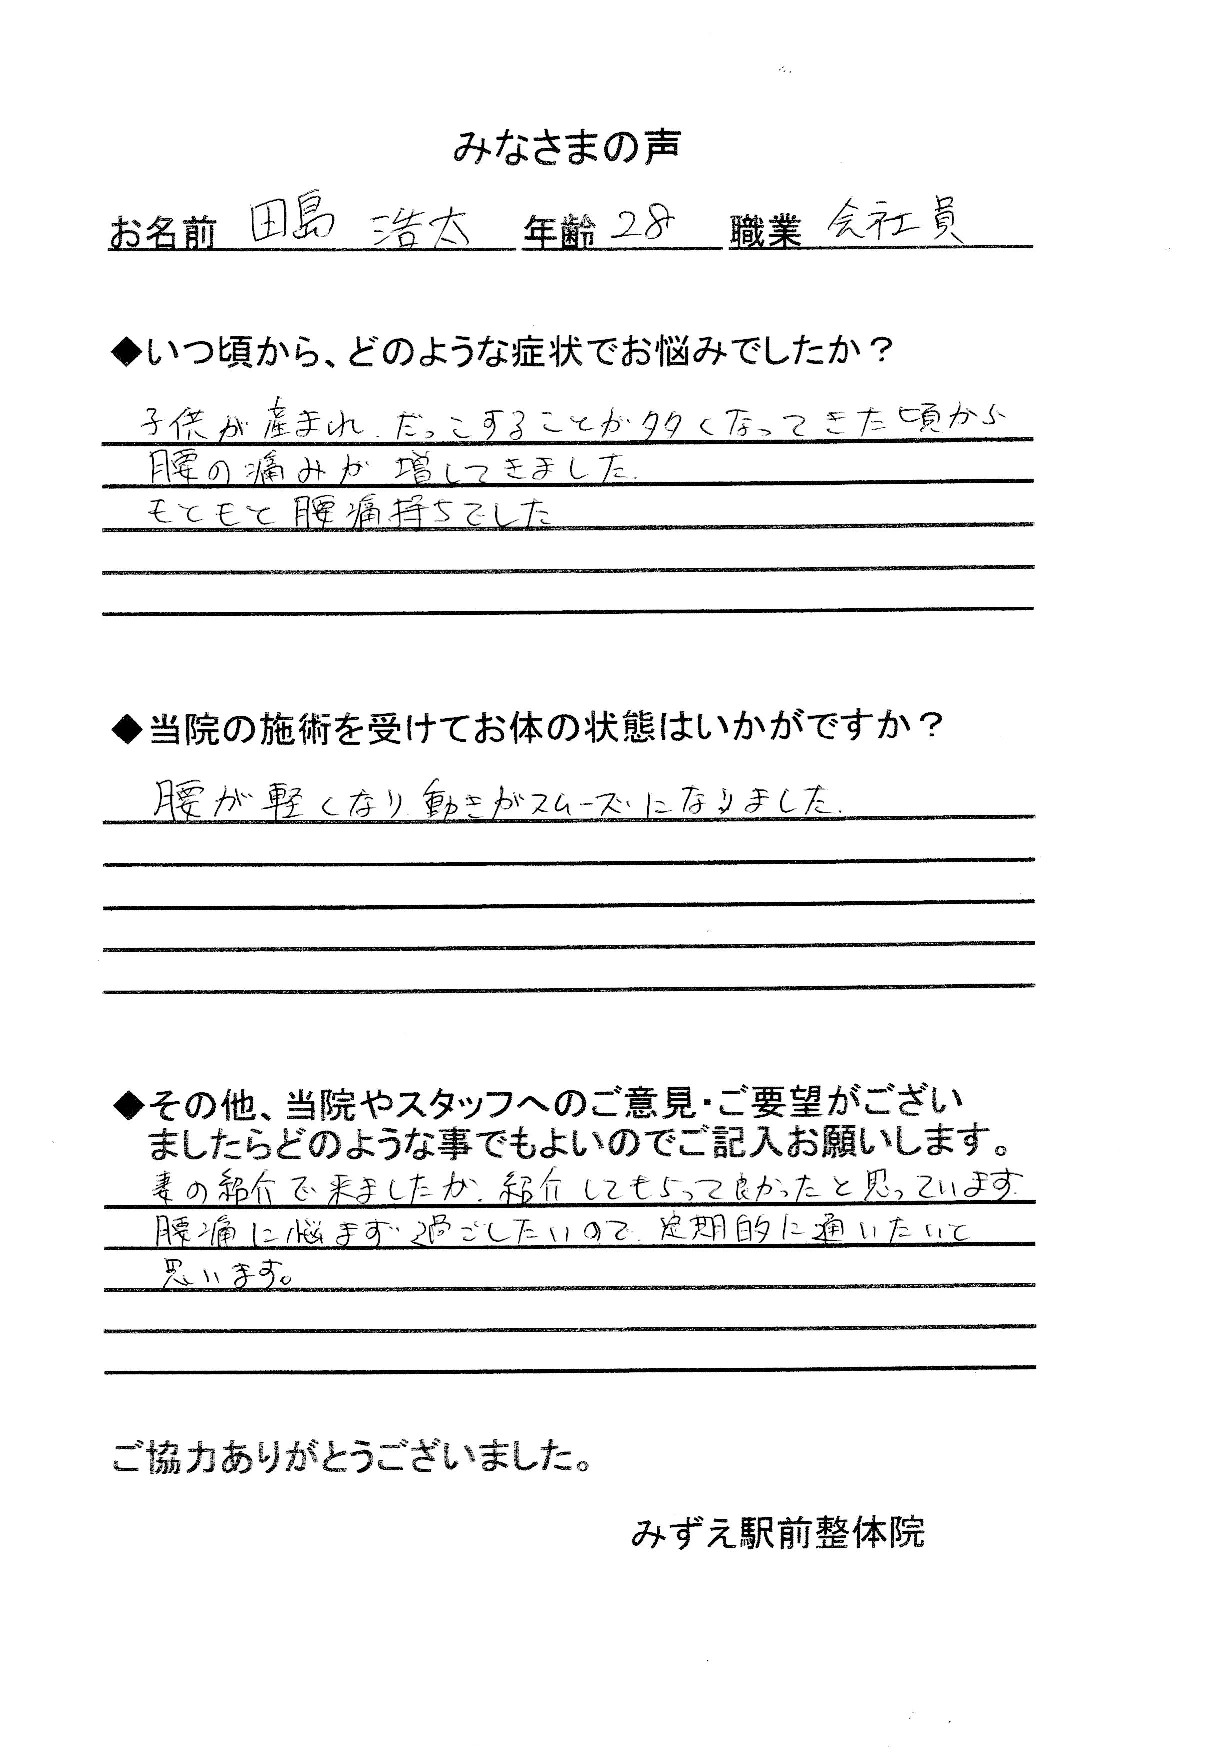 みなさまの声
お名前 田島 浩太 年齢 28 職業 会社員
◆いつ頃から、どのような症状でお悩みでしたか？
子供が産まれ、だっこすることが多くなってきた頃から
腰の痛みが増してきました。
もともと腰痛持ちでした
◆当院の施術を受けてお体の状態はいかがですか？
腰が軽くなり動きがスムーズになりました。
◆その他、当院やスタッフへのご意見・ご要望がござい
ましたらどのような事でもよいのでご記入お願いします。
妻の紹介で来ましたが、紹介してもらって良かったと思っています
腰痛に悩まず過ごしたいので、定期的に通いたいと
思います。
ご協力ありがとうございました。
みずえ駅前整体院